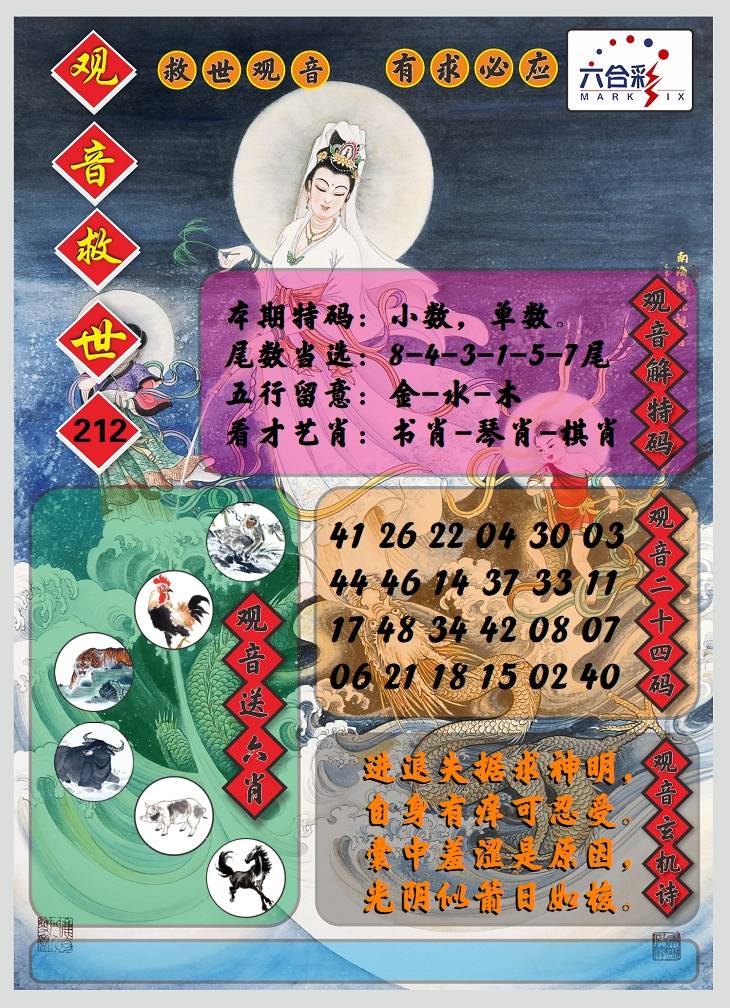 观音救世
212
救世观音 有求必应
六合彩
MARK SIX
观音解特码
本期特码：小数，单数。
尾数当选：8-4-3-1-5-7尾
五行留意：金-水-木
看才艺肖：书肖-琴肖-棋肖
观音送六肖
观音二十四码
41 26 22 04 30 03
44 46 14 37 33 11
17 48 34 42 08 07
06 21 18 15 02 40
观音玄机诗
进退失据求神明，
自身有痒可忍受。
囊中羞涩是原因，
光阴似箭日如梭。